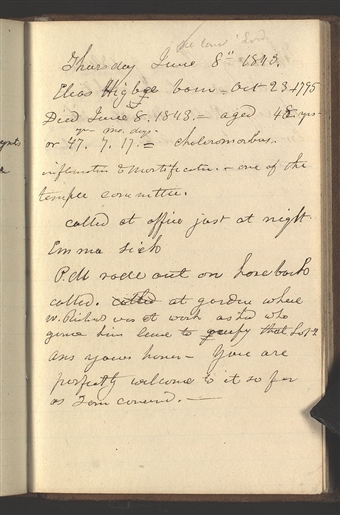 Thursday June 8th 1843.
Elias Higbee born Oct 23 1795
Died June 8. 1843. - aged 48 yrs
yr mo. dys.
or 47. 7. 17. - choleromorbus.
inflamation & mortification - one of the
temple committee.
called at office just at night.
Emma sick
P.M rode out on horseback
called. called at garden where
W. was at work asked who
gave him leave to occupy that Lot
Ans your honor - You are
perfectly welcome to it so far
as I am concernd. -